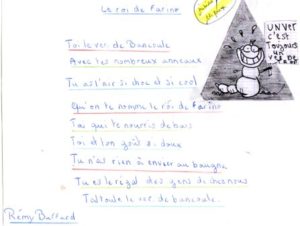 Le roi de farine
Toi le ver de Bancoule
Avec tes nombreux anneaux
Tu as l'air si choc et si cool
Qu'on te nomme le roi de farine
Toi qui te nourris de bois
Toi et ton goût si doux
Tu n'as rien à envier au bougna
Tu es le régal des gens de chez nous
Toi le ver de bancoule.
Rémy Buffard
UN VER
C'EST
TOUJOURS
UN
VER DE